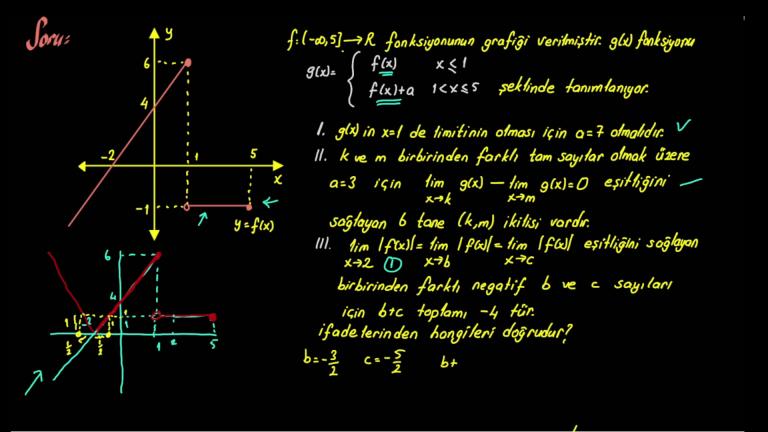 Soru:
y
6
4
-2
1
5
x
-1
y=f(x)
f:(-∞,5]→R fonksiyonunun grafiği verilmiştir. g(x) fonksiyonu
g(x)= { f(x) x≤1
f(x)+a 1<x≤5 şeklinde tanımlanıyor.
I. g(x) in x=1 de limitinin olması için a=7 olmalıdır. ✓
II. k ve m birbirinden farklı tam sayılar olmak üzere
a=3 için lim x→k g(x) - lim x→m g(x)=0 eşitliğini
sağlayan 6 tane (k,m) ikilisi vardır.
III. lim x→2 |f(x)| = lim x→b |f(x)| = lim x→c |f(x)| eşitliğini sağlayan
1
birbirinden farklı negatif b ve c sayıları
için b+c toplamı -4 tür.
ifadelerinden hangileri doğrudur?
b=-3/2 c=-5/2 b+
6
4
1
-2
1
1
1/2
1/2
1
2
5